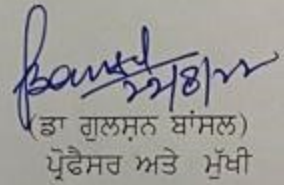 Bansal
22/8/22
(ਡਾ ਗੁਲਸ਼ਨ ਬਾਂਸਲ)
ਪ੍ਰੋਫੈਸਰ ਅਤੇ ਮੁੱਖੀ